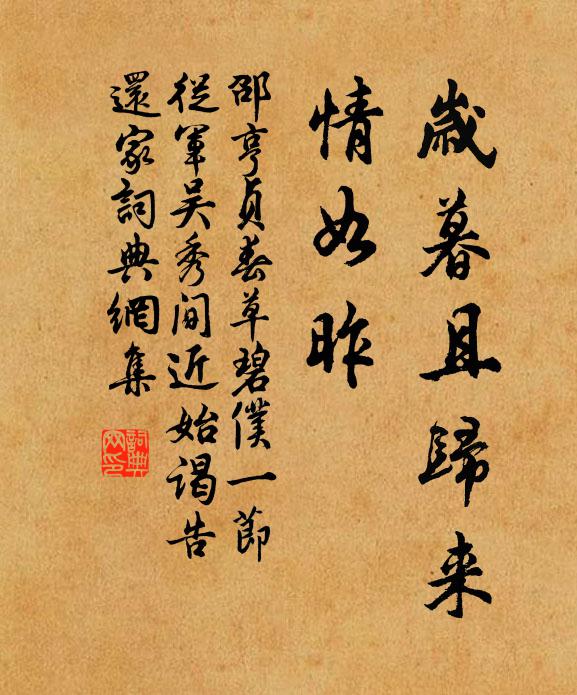 歲暮且歸来
情如昨
邵亨貞春草碧僕一節
從軍吳秀间近始谒告
還家詞典網集
詞典
网印